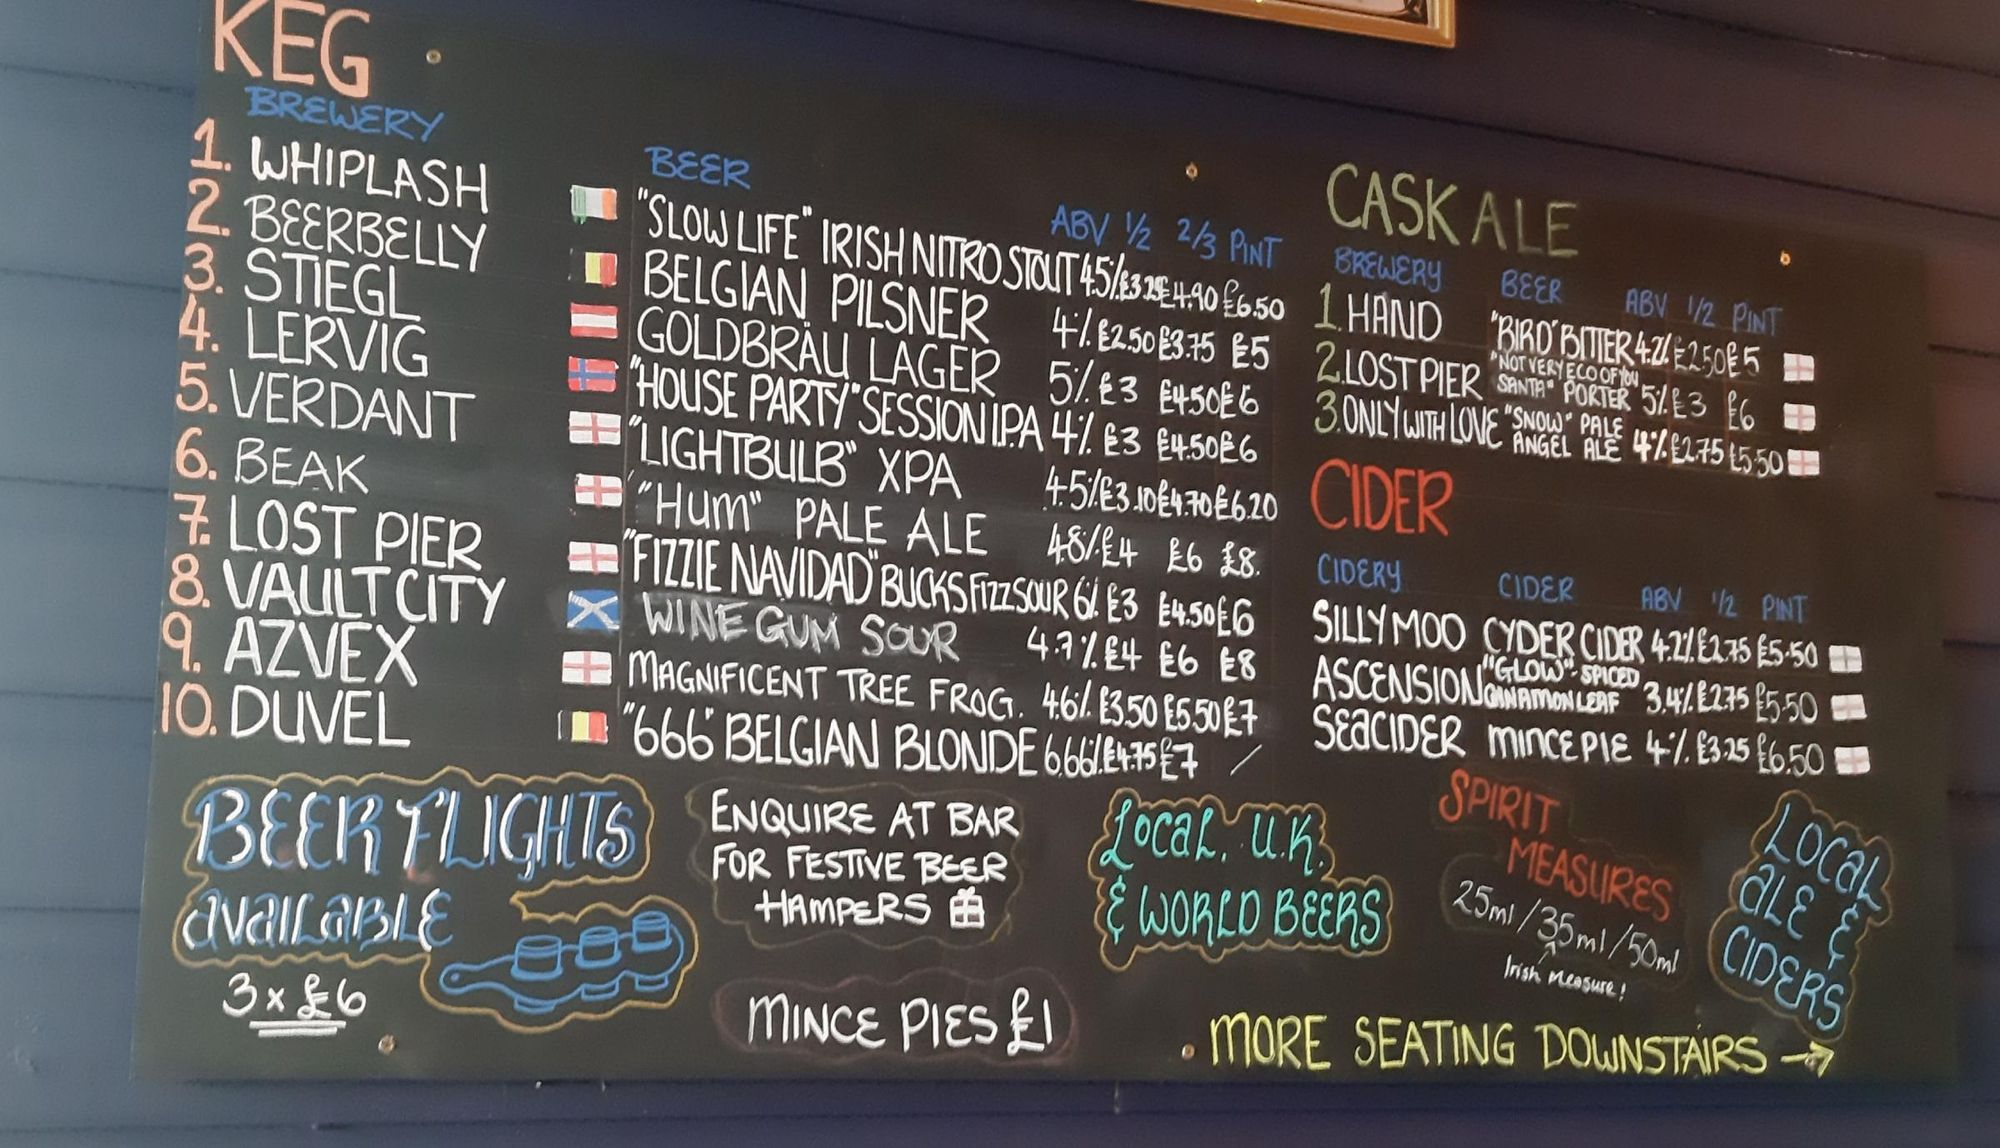 KEG
BREWERY BEER ABV 1/2 2/3 PINT
1. WHIPLASH "SLOW LIFE" IRISH NITRO STOUT 4.5% £3.25 £4.90 £6.50
2. BEERBELLY BELGIAN PILSNER 4% £2.50 £3.75 £5
3. STIEGL GOLDBRÄU LAGER 5% £3 £4.50 £6
4. LERVIG "HOUSE PARTY" SESSION I.P.A 4% £3 £4.50 £6
5. VERDANT "LIGHTBULB" XPA 4.5% £3.10 £4.70 £6.20
6. BEAK "HUM" PALE ALE 4.8% £4 £6 £8.
7. LOST PIER "FIZZIE NAVIDAD" BUCKS FIZZ SOUR 6% £3 £4.50 £6
8. VAULT CITY WINE GUM SOUR 4.7% £4 £6 £8
9. AZVEX MAGNIFICENT TREE FROG. 4.6% £3.50 £5.50 £7
10. DUVEL "666" BELGIAN BLONDE 6.66% £4.75 £7 /
CASK ALE
BREWERY BEER ABV 1/2 PINT
1. HAND "BIRD" BITTER 4.2% £2.50 £5
2. LOST PIER "NOT VERY ECO OF YOU
SANTA" PORTER 5% £3 £6
3. ONLY WITH LOVE "SNOW" PALE
ANGEL ALE 4% £2.75 £5.50
CIDER
CIDERY CIDER ABV 1/2 PINT
SILLY MOO CYDER CIDER 4.2% £2.75 £5.50
ASCENSION "GLOW"-SPICED
CINAMON LEAF 3.4% £2.75 £5.50
SEACIDER MINCE PIE 4% £3.25 £6.50
BEER FLIGHTS
AVAILABLE
3 x £6
ENQUIRE AT BAR
FOR FESTIVE BEER
HAMPERS
MINCE PIES £1
LOCAL, U.K.
& WORLD BEERS
SPIRIT
MEASURES
25ml / 35ml / 50ml
Irish Measure!
LOCAL
ALE &
CIDERS
MORE SEATING DOWNSTAIRS →